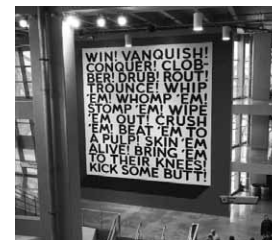 WIN! VANQUISH!
CONQUER! CLOB-
BER! DRUB! ROUT!
TROUNCE! WHIP
'EM! WHOMP 'EM!
STOMP 'EM! WIPE
'EM OUT! CRUSH
'EM! BEAT 'EM TO
A PULP! SKIN 'EM
ALIVE! BRING 'EM
TO THEIR KNEES!
KICK SOME BUTT!